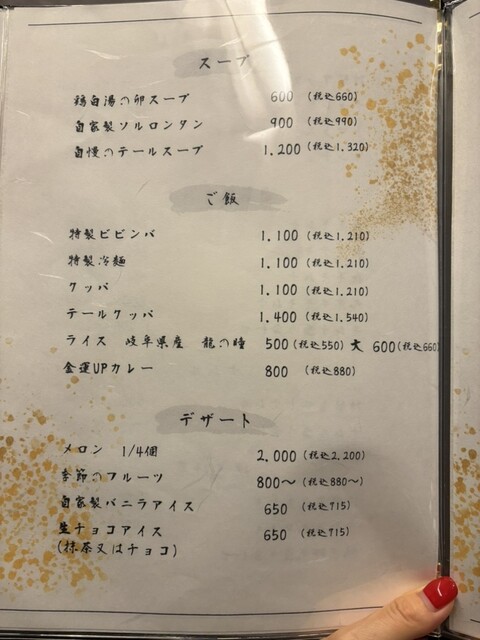 スープ
鶏白湯の卵スープ 600 (税込660)
自家製ソルロンタン 900 (税込990)
自慢のテールスープ 1,200 (税込1,320)
ご飯
特製ビビンバ 1,100 (税込1,210)
特製冷麺 1,100 (税込1,210)
クッパ 1,100 (税込1,210)
テールクッパ 1,400 (税込1,540)
ライス 岐阜県産 龍の瞳 500 (税込550) 大 600 (税込660
金運UPカレー 800 (税込880)
デザート
メロン 1/4個 2,000 (税込2,200)
季節のフルーツ 800〜 (税込880〜)
自家製バニラアイス 650 (税込715)
生チョコアイス 650 (税込715)
(抹茶又はチョコ)